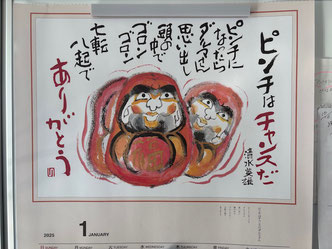 ピンチはチャンスだ
清水英雄
ピンチに
なったら
ダルマさん
思い出し
頭の中で
ゴロンゴロン
ゴローン
七転
八起で
ありがとう
2025
1
JANUARY
SUNDAY
MONDAY
TUESDAY
WEDNESDAY
THURSDAY
FRIDAY